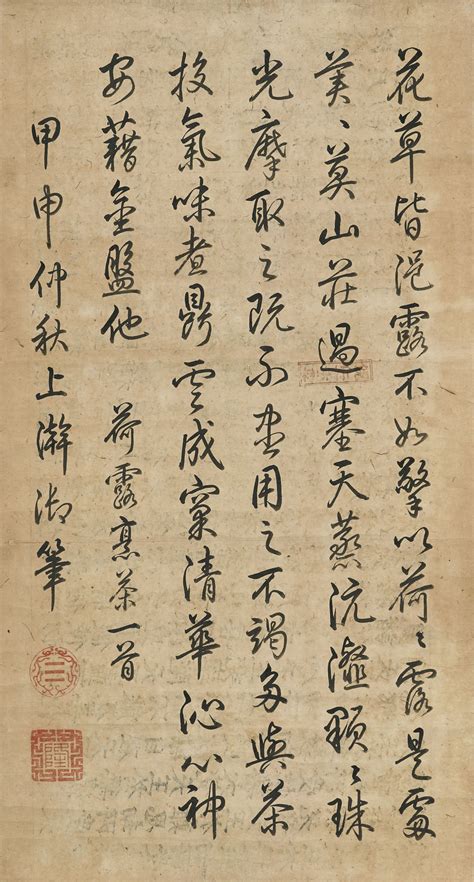 花草皆浥露不如擎以荷〻露是處
美〻莫山莊過塞天蒸沆瀣顆〻珠
光摩取之既不盡用之不竭多與茶
投氣味煮鼎雲成窠清華沁心神
安藉金盤他 荷露烹茶一首
甲申仲秋上澣御筆
隆